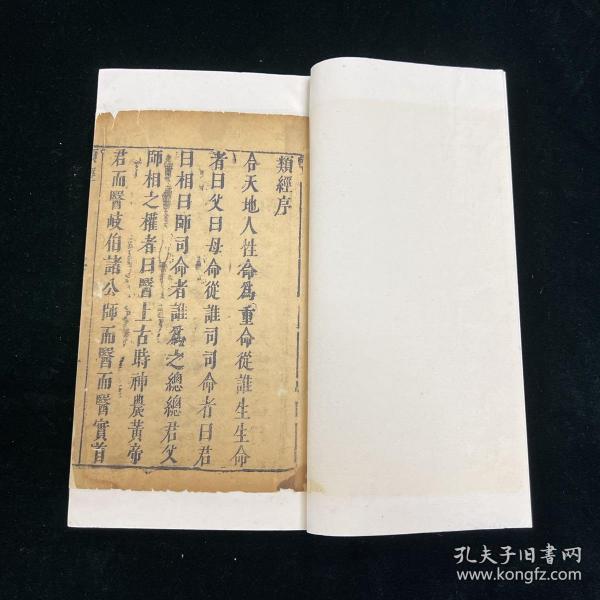 類經序
合天地人性命為重命從誰生生命
者曰父曰母命從誰司司命者曰君
曰相曰師司命者誰為之總總君父
師相之權者曰醫上古時神農黃帝
君而醫岐伯諸公師而醫而醫實首
類經
孔夫子旧书网
www.kongfz.com